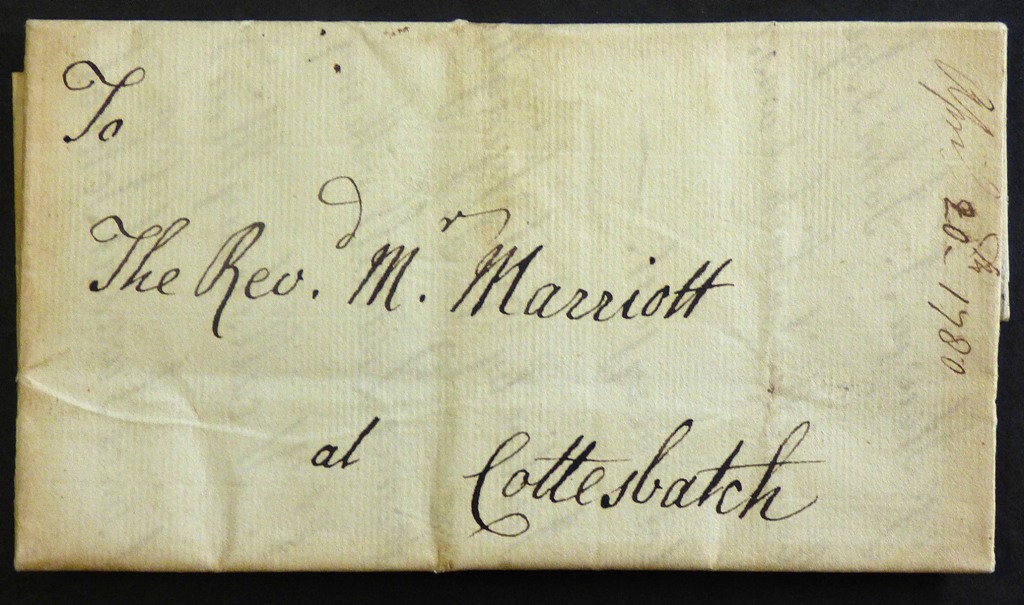 To
The Rev.d M.r Marriott
at Cottesbatch
April 20th 1780